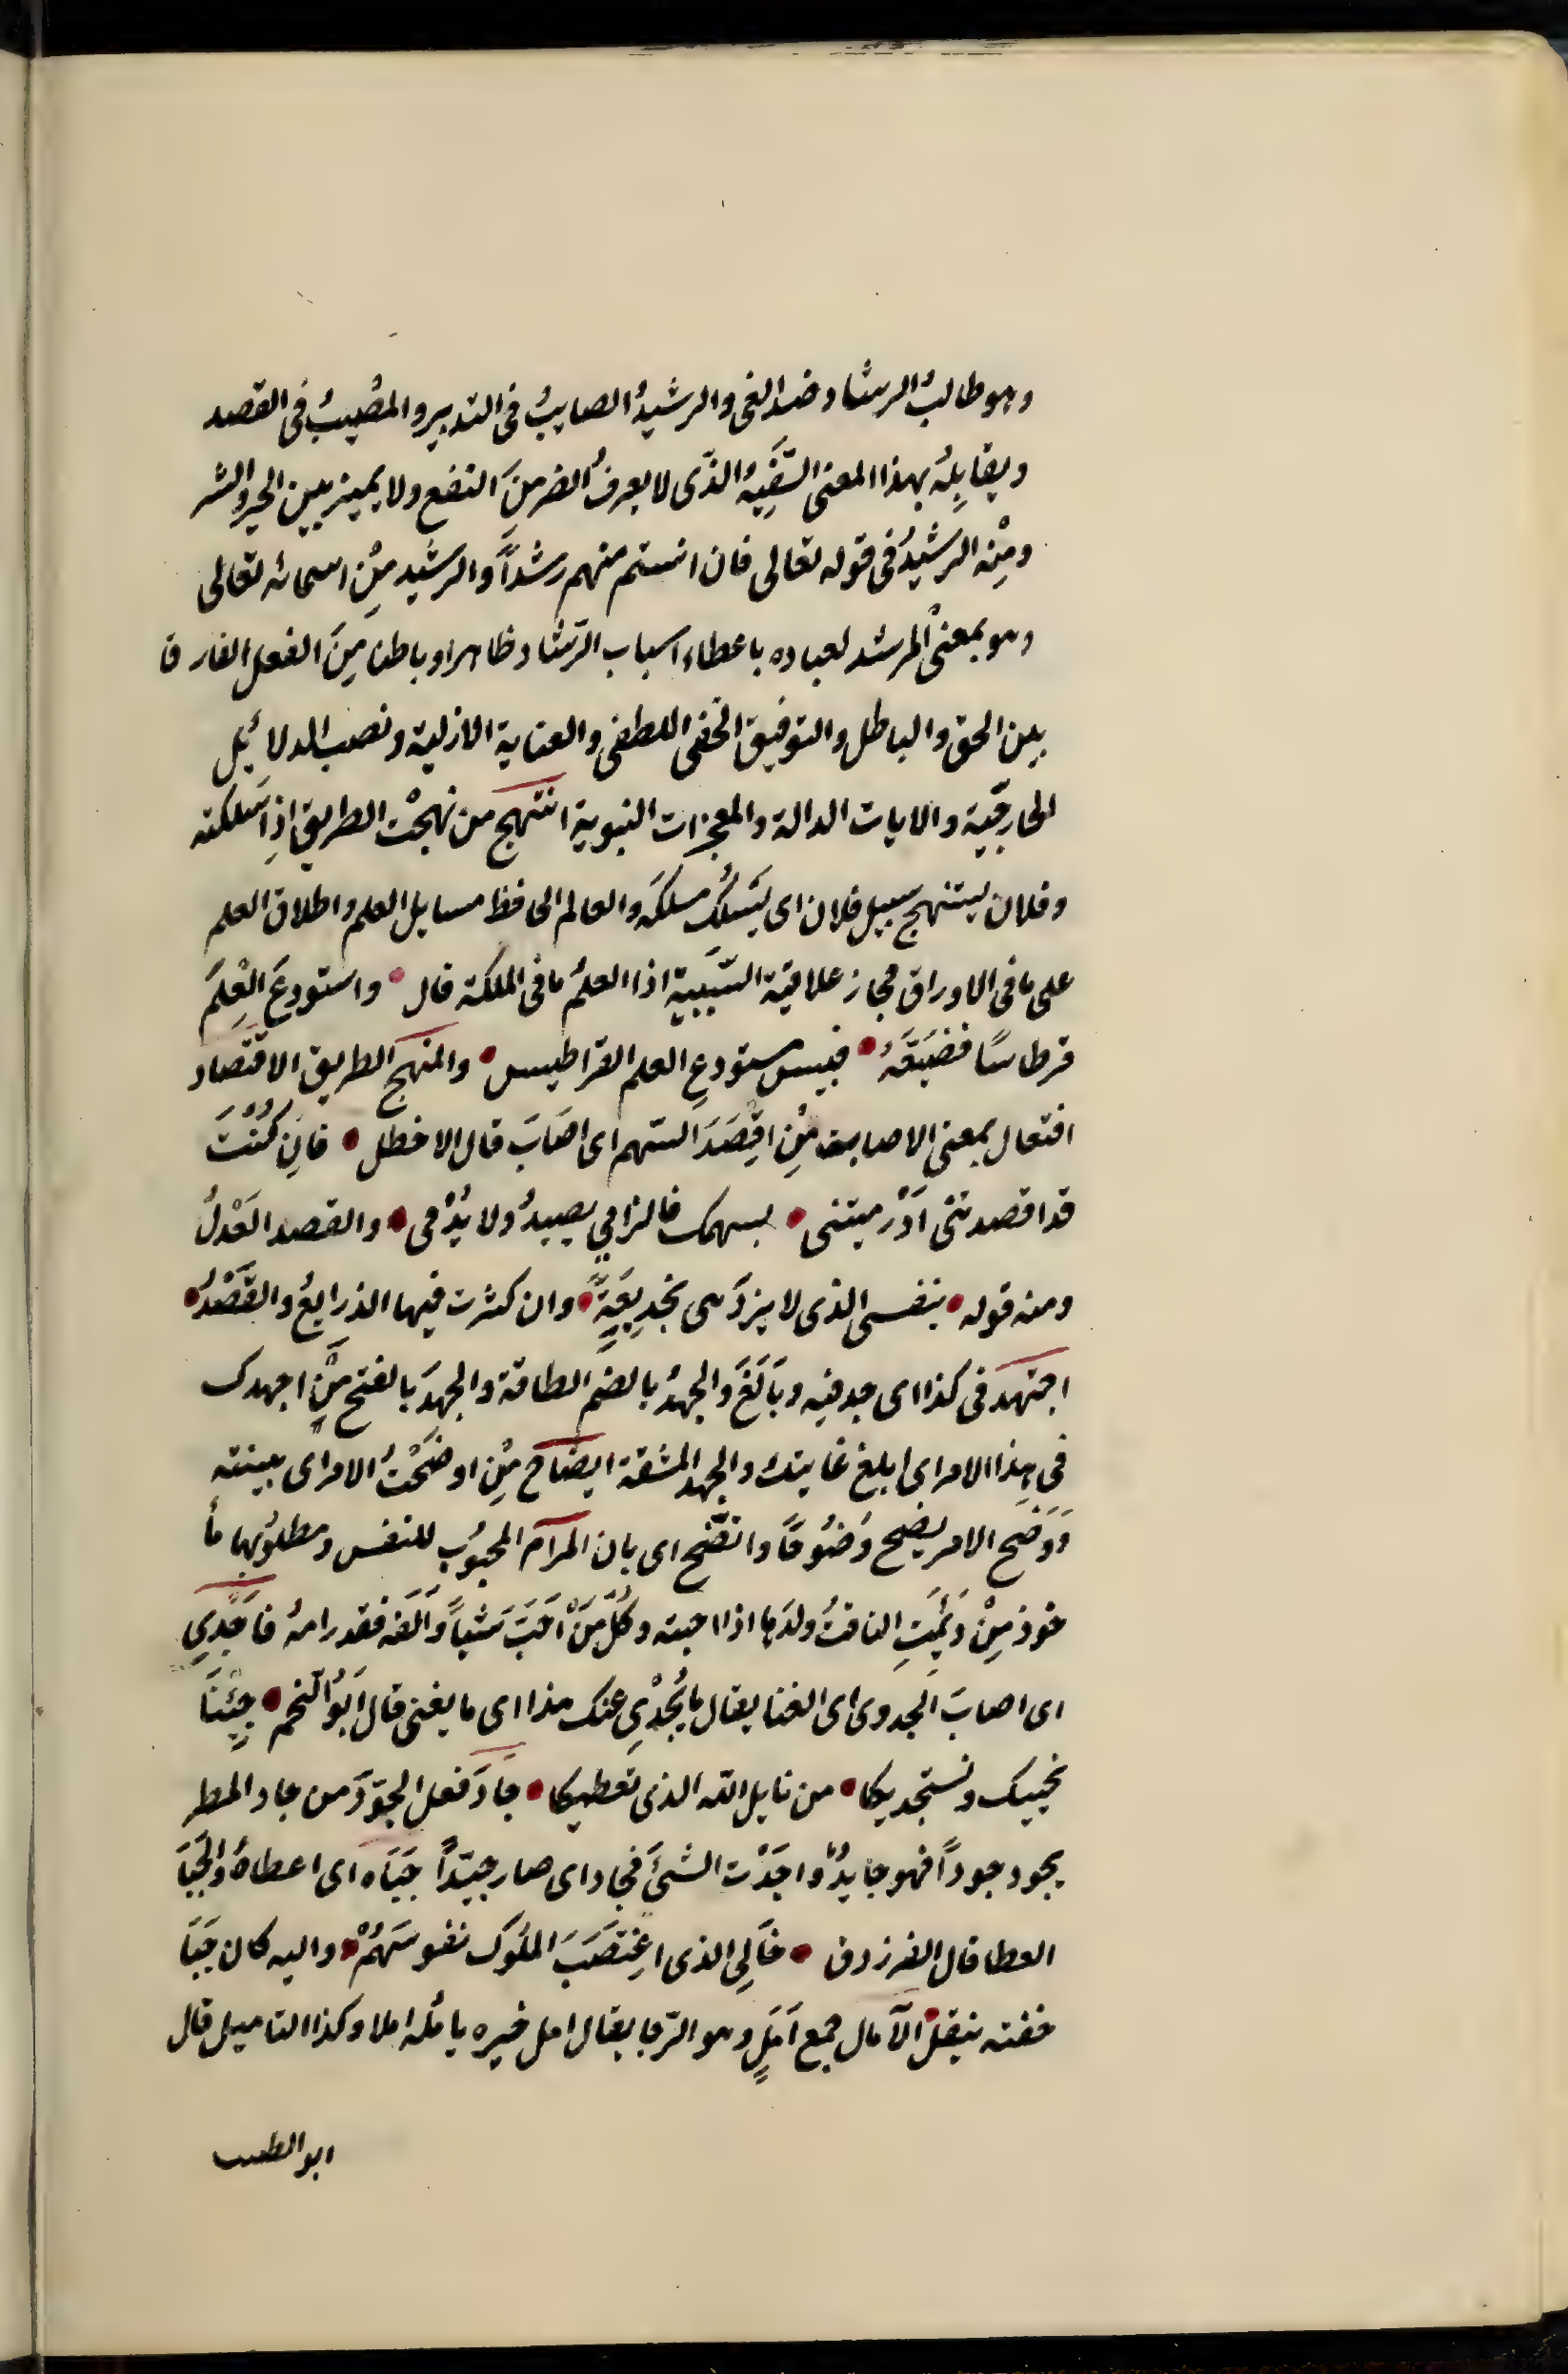 وهو طالبُ الرشاد ضد الغى والرشيدُ الصايبُ فى التدبير والمصُيبُ فى القصد
ويقابِلهُ بهذا المعنى السَّفِيهُ الذّى لا يعرفُ الضر منَ النفع ولا يميز بيين الخير والشر
ومنِْه الرشيدُ فى قوله تعالى فان انستم منهم رشداًَ والرشيد مِنْ اسمائه تعالى
وهو بمعنىْ المرشد لعباده باعطاء اسباب الرّشاد ظاهرا وباطنا مِنَ الفعل الفار قا
بين الحق والباطل والتوفيق الخفى اللطفى والعناية الازلية ونصب الدلائِل
الخارجّية والايات الدالة والمعجزات النبوية انتهج من نهجْت الطريق اذِا سَلكته
وفلان ليتنهج سبيل فلان اى يَسْلُكُ مسلكَه والعالم الحافظ مسايل العلم واطلاق العلم
على ما فى الاوراق مجاز علاقيّة السَّبَبية اذا العلمُ ما فى الملكة قال واستودعَ العِلمَ
قرطاسًا فضيَّقَهُ فبيس مستودعِ العلم القراطيس والمنهج الطريق الاقتصاد
افتعال بمعنى الاصابه مِنْ اقِصَدَ السّهم اى اصَابَ قال الاخطل فانِ كُنْتَ
قد اقصدتنى اذْ رميتنى بسهمك فالرامِي يصيبدُ ولا يدُْمى والقصد العَدْلُ
ومنه قوله بنفسى الذى لا يزدَهى بخَدِيعَةٍ وان كثرت فيها الذرايعُ والقَّصْدُ
اجتهَد فى كذا اى جد فيه وبَالَغَ والجهدُ بالضم الطاقة والجهدَ بالفتح مِّنْ اجهدك
فى هِذا الامر اى ابلغ غايتك والجهد المشقة ايضاح مِْن اوضَحْتُ الامر اى بينته
وَوَضَح الامر يضح وُضوُحًا واتضّح اى بان المرآم المحبوُب للنفس ومطلوُبها مأ
خوذ مِنْ رَئمِتَِ الناقةُ ولدَها اذا احبته وكُلُّ مَنْ اَحَبَّ شَيئاً وَالَفه فقد رامهُ فاجَدِي
اى اصابَ الجدوى اى الغنا يقال ما يُجْدِى عنك هذا اى ما يغنى قال اَبُو النّجم جِئنَا
نحييك ونستجديكا من نايل الله الذى تعطيكا جَادَ فعل الجَوّدَ من جاد المطر
يجود جوداً فهو جايدٌ واجَدْت الشئَ فجاد اى صار جيدّاً حَبَاه اى اعطاهُ والحِبَا
العطا قال الفرزدق خَالِى الذى اغِتصَبَ الملُوكَ نفوسَهُمْ واليه كان حَبَا
جفنه ينقلُ الآمال جمع اَمَلٍ وهو الرّجا يقال امل خيره ياملُه املا وكذا التاميل قال
ابو الطيب